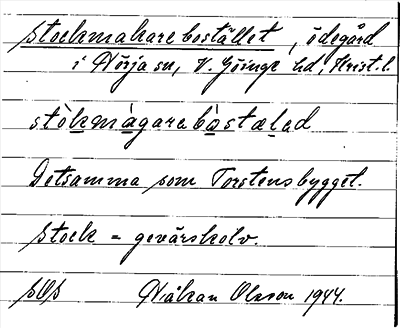 Stockmakarebostället, ödegård
i Nörja sn, V. Göinge hd, Krist. l.
stòkmàgarebòstælad
Detsamma som Torstensbygget.
Stock = gevärskolv.
Håkan Olsson 1944.